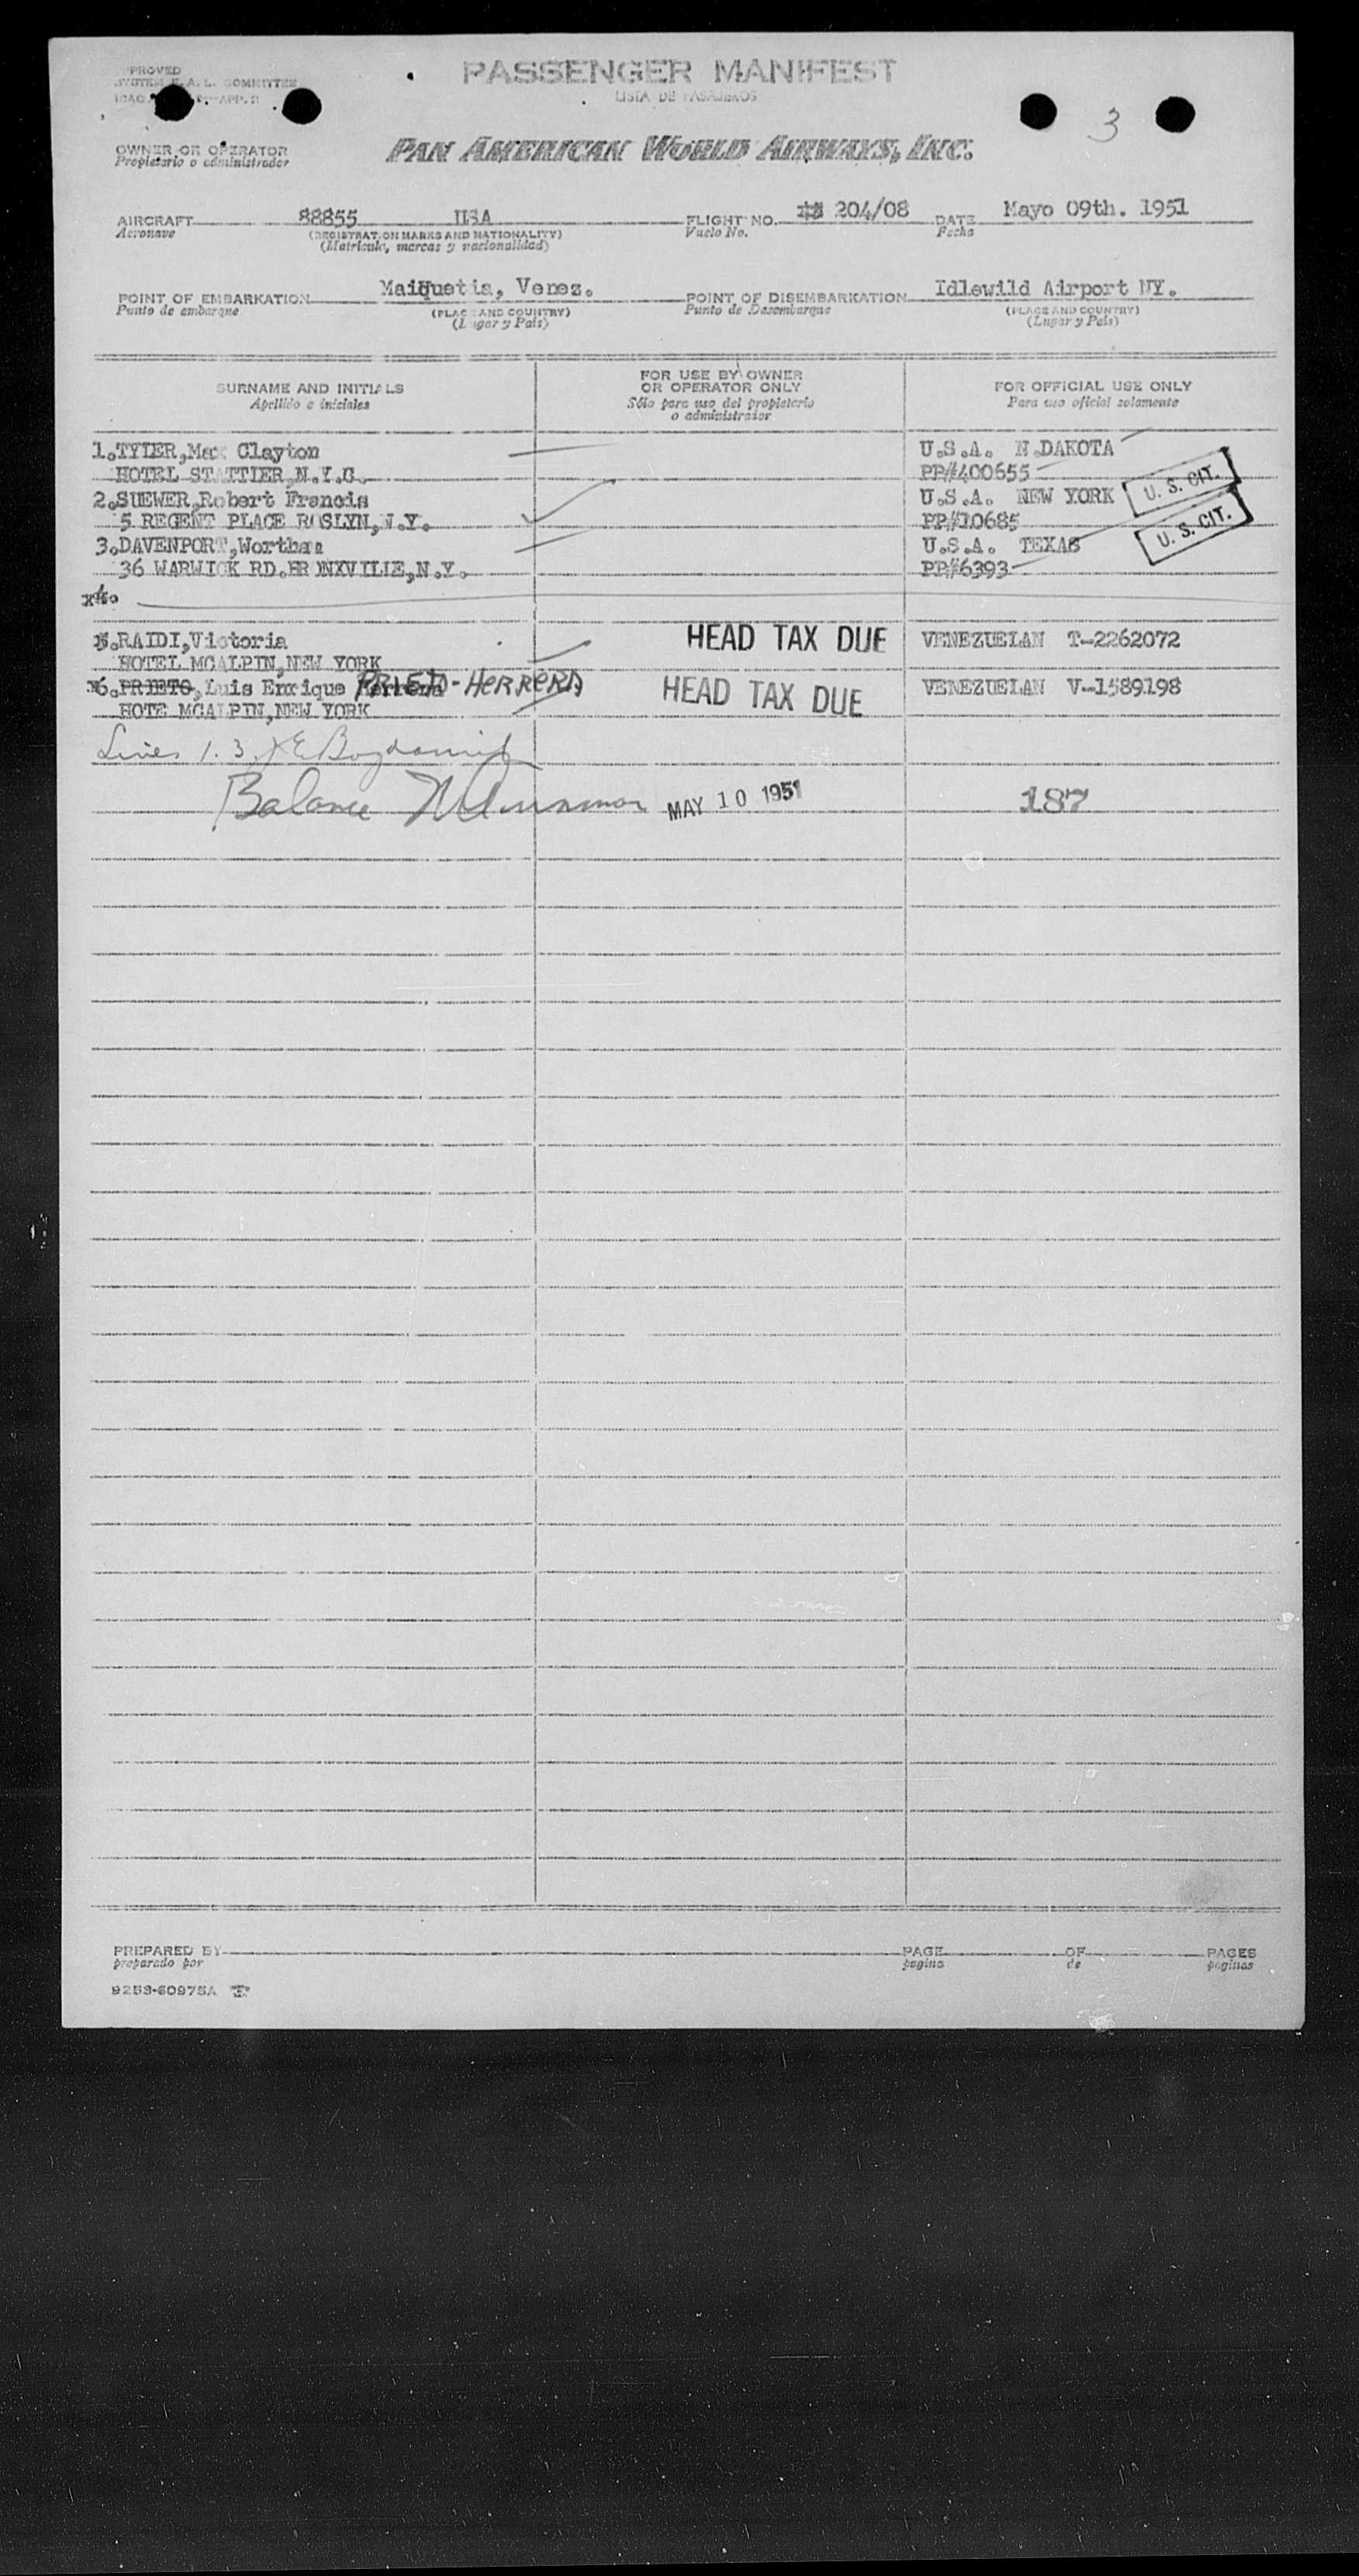 PASSENGER MANIFEST
LISTA DE PASAJEROS
3
OWNER OR OPERATOR
Propietario o administrador
PAN AMERICAN WORLD AIRWAYS, INC.
AIRCRAFT 88855 USA FLIGHT NO. 204/08 DATE Mayo 09th. 1951
Aeronave (REGISTRATION MARKS AND NATIONALITY) Vuelo No. Fecha
(Matricula, marcas y nacionalidad)
POINT OF EMBARKATION Maiquetia, Venez. POINT OF DISEMBARKATION Idlewild Airport NY.
Punto de embarque (PLACE AND COUNTRY) Punto de Desembarque (PLACE AND COUNTRY)
(Lugar y Pais) (Lugar y Pais)
SURNAME AND INITIALS FOR USE BY OWNER OR OPERATOR ONLY FOR OFFICIAL USE ONLY
Apellido e iniciales Sólo para uso del propietario o administrador Para uso oficial solamente
1.TYLER,Max Clayton U.S.A. N.DAKOTA
HOTEL STATTIER,N.Y.C. PP#400655
2.SUEWER,Robert Francis U.S.A. NEW YORK U. S. CIT.
5 REGENT PLACE ROSLYN,N.Y. PP#10685
3.DAVENPORT,Wortham U.S.A. TEXAS U. S. CIT.
36 WARWICK RD.BRONXVILLE,N.Y. PP#6393
x4.
5.RAIDI,Victoria HEAD TAX DUE VENEZUELAN T-2262072
HOTEL MCALPIN,NEW YORK
6.PRIETO,Luis Enrique PRIETO-HERRERA HEAD TAX DUE VENEZUELAN V-1589198
HOTE MCALPIN,NEW YORK
Lines 1. 3.
Balance MAY 10 1951 187
PREPARED BY PAGE OF PAGES
preparado por pagina de paginas
9253-60975A